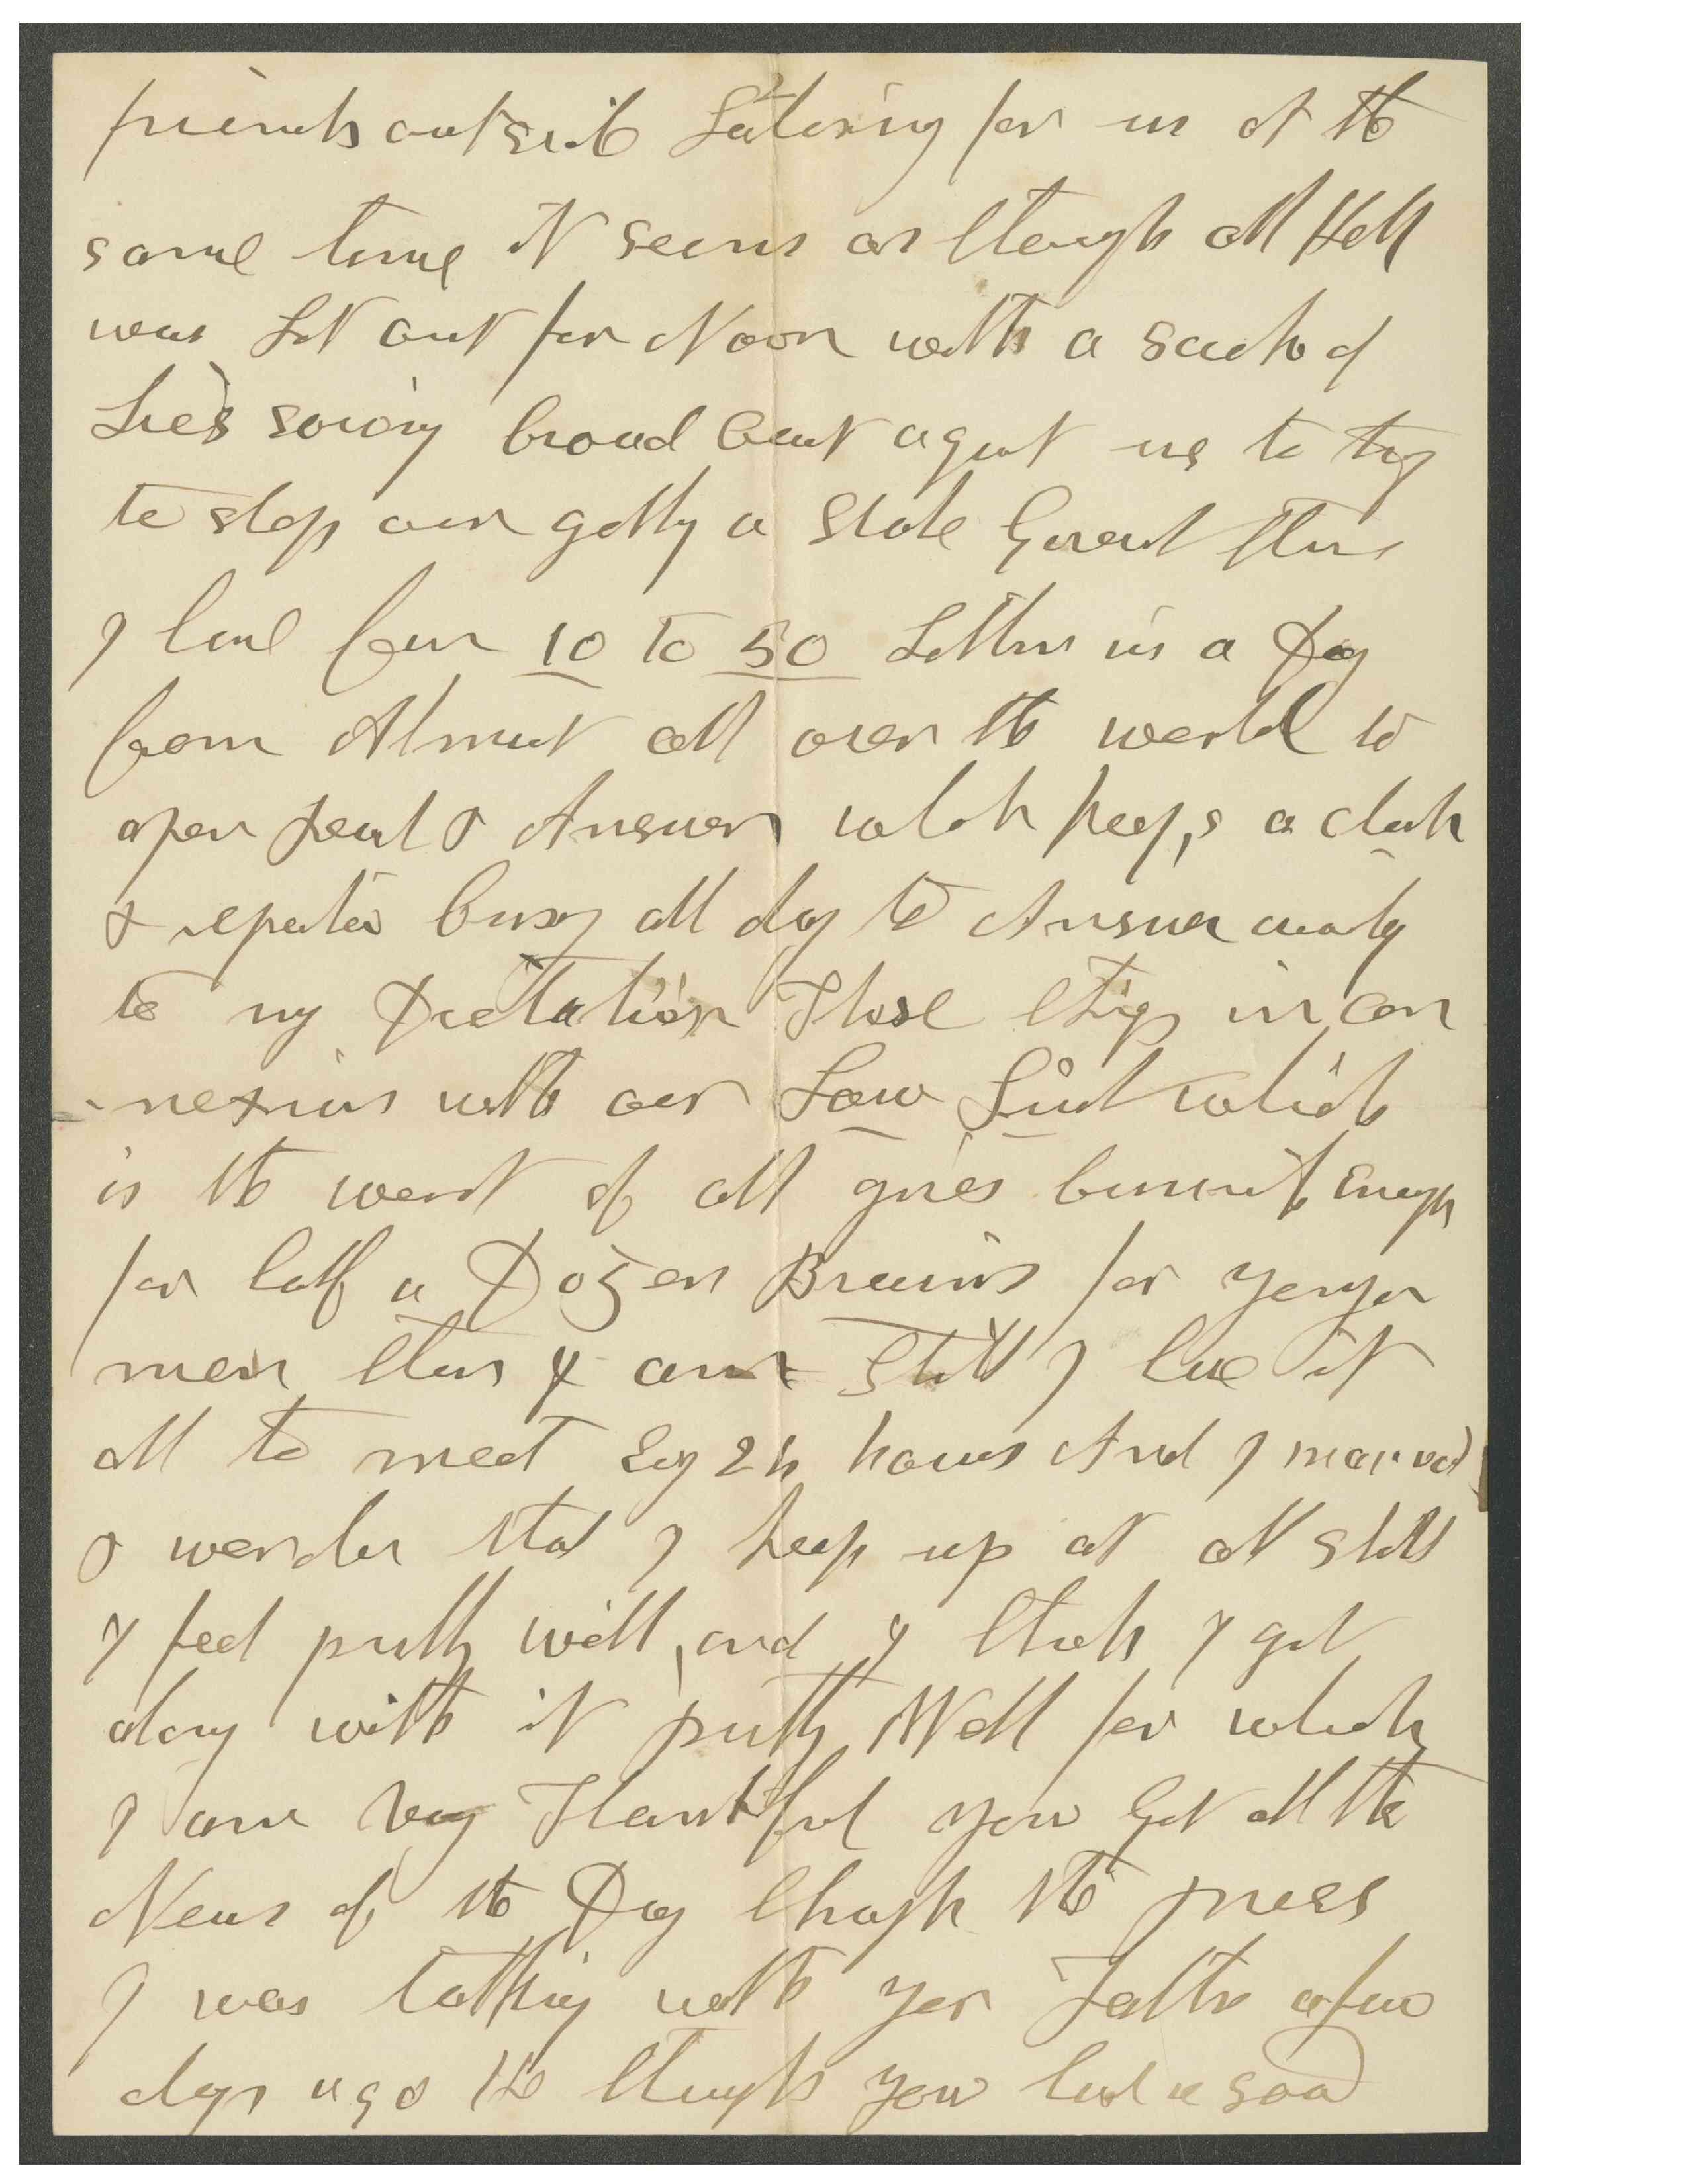 friends outside Laboring for us at the
same time it seems as though all Hell
was Let out for Noon with a sack of
Lies sowing broad Cast against us to try
to stop our getting a State Goverment then
I have from 10 to 50 Letters in a Day
from Almost all over the world to
open read & Answer which keeps a clerk
& reporter busy all day to Answer mostly
to my Dictation These things in con
-nexion with our Law Suit which
is the worst of all gives business Enough
for half a Dozen Brains for younger
men than I am Still I have it
all to meet Evry 24 hours And I marvel
& wonder that I keep up at all still
I feel pretty well, and I think I get
along with it pretty Well for which
I am very Thankful you Get all the
News of the Day through the press
I was talking with your Father a few
days ago He thought you had a good